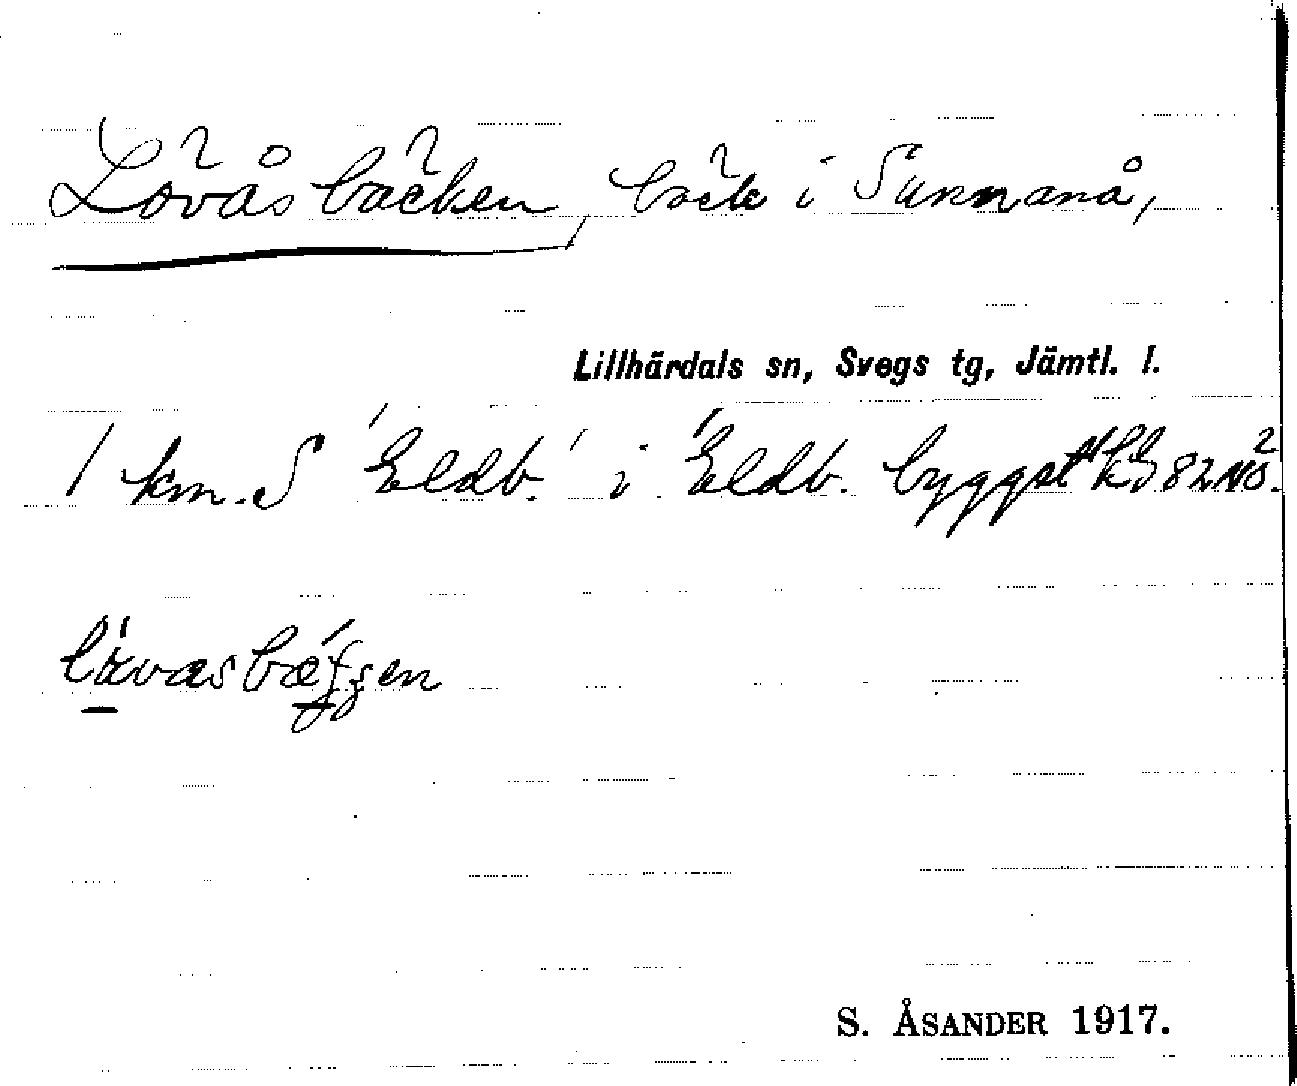 Lövåsbäcken, bäck i Sunnanå,
Lillhärdals sn, Svegs tg, Jämtl. l.
1 km. S 'Eldb.' i 'Eldb. byggst' 82 NÖ.
S. ÅSANDER 1917.